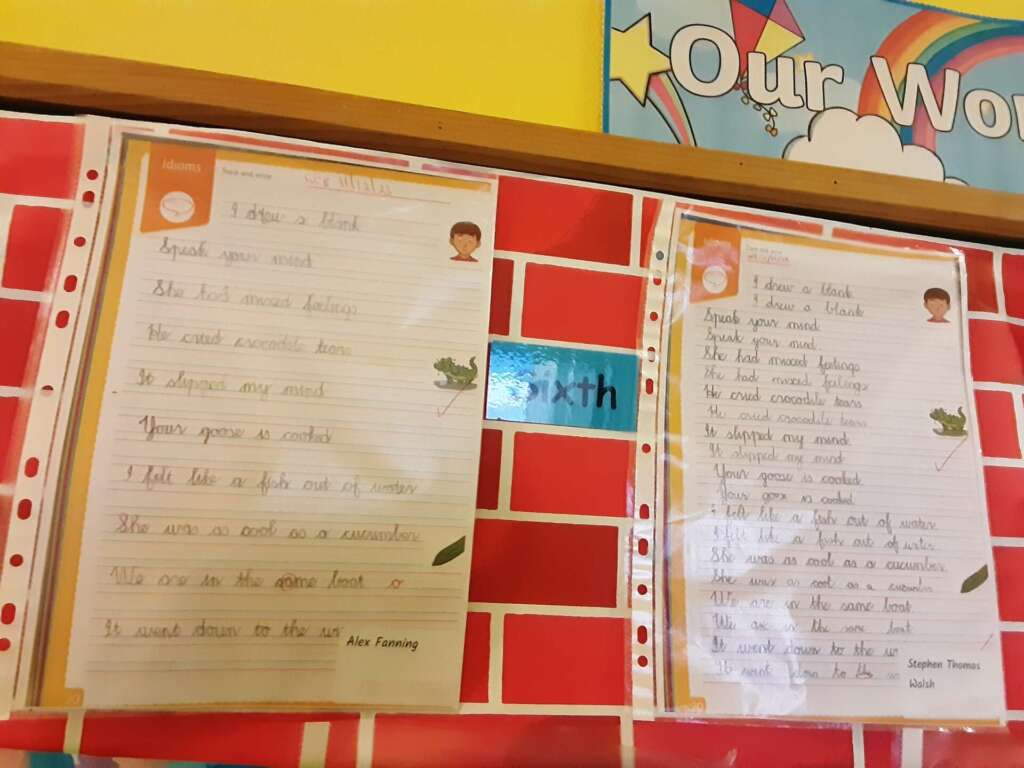 Our Wor
idioms
Trace and write
I drew a blank
Speak your mind
She had mixed feelings
He cried crocodile tears
It slipped my mind
Your goose is cooked
I felt like a fish out of water
She was as cool as a cucumber
We are in the same boat a
It went down to the
Alex Fanning
sixth
Trace and write
I drew a blank
I drew a blank
Speak your mind
Speak your mind
She had mixed feelings
She had mixed feelings
He cried crocodile tears
He cried crocodile tears
It slipped my mind
It slipped my mind
Your goose is cooked
Your goose is cooked
I felt like a fish out of water
I felt like a fish out of water
She was as cool as a cucumber
She was as cool as a cucumber
We are in the same boat
We are in the same boat
It went down to the
It went down to the
Stephen Thomas
Walsh